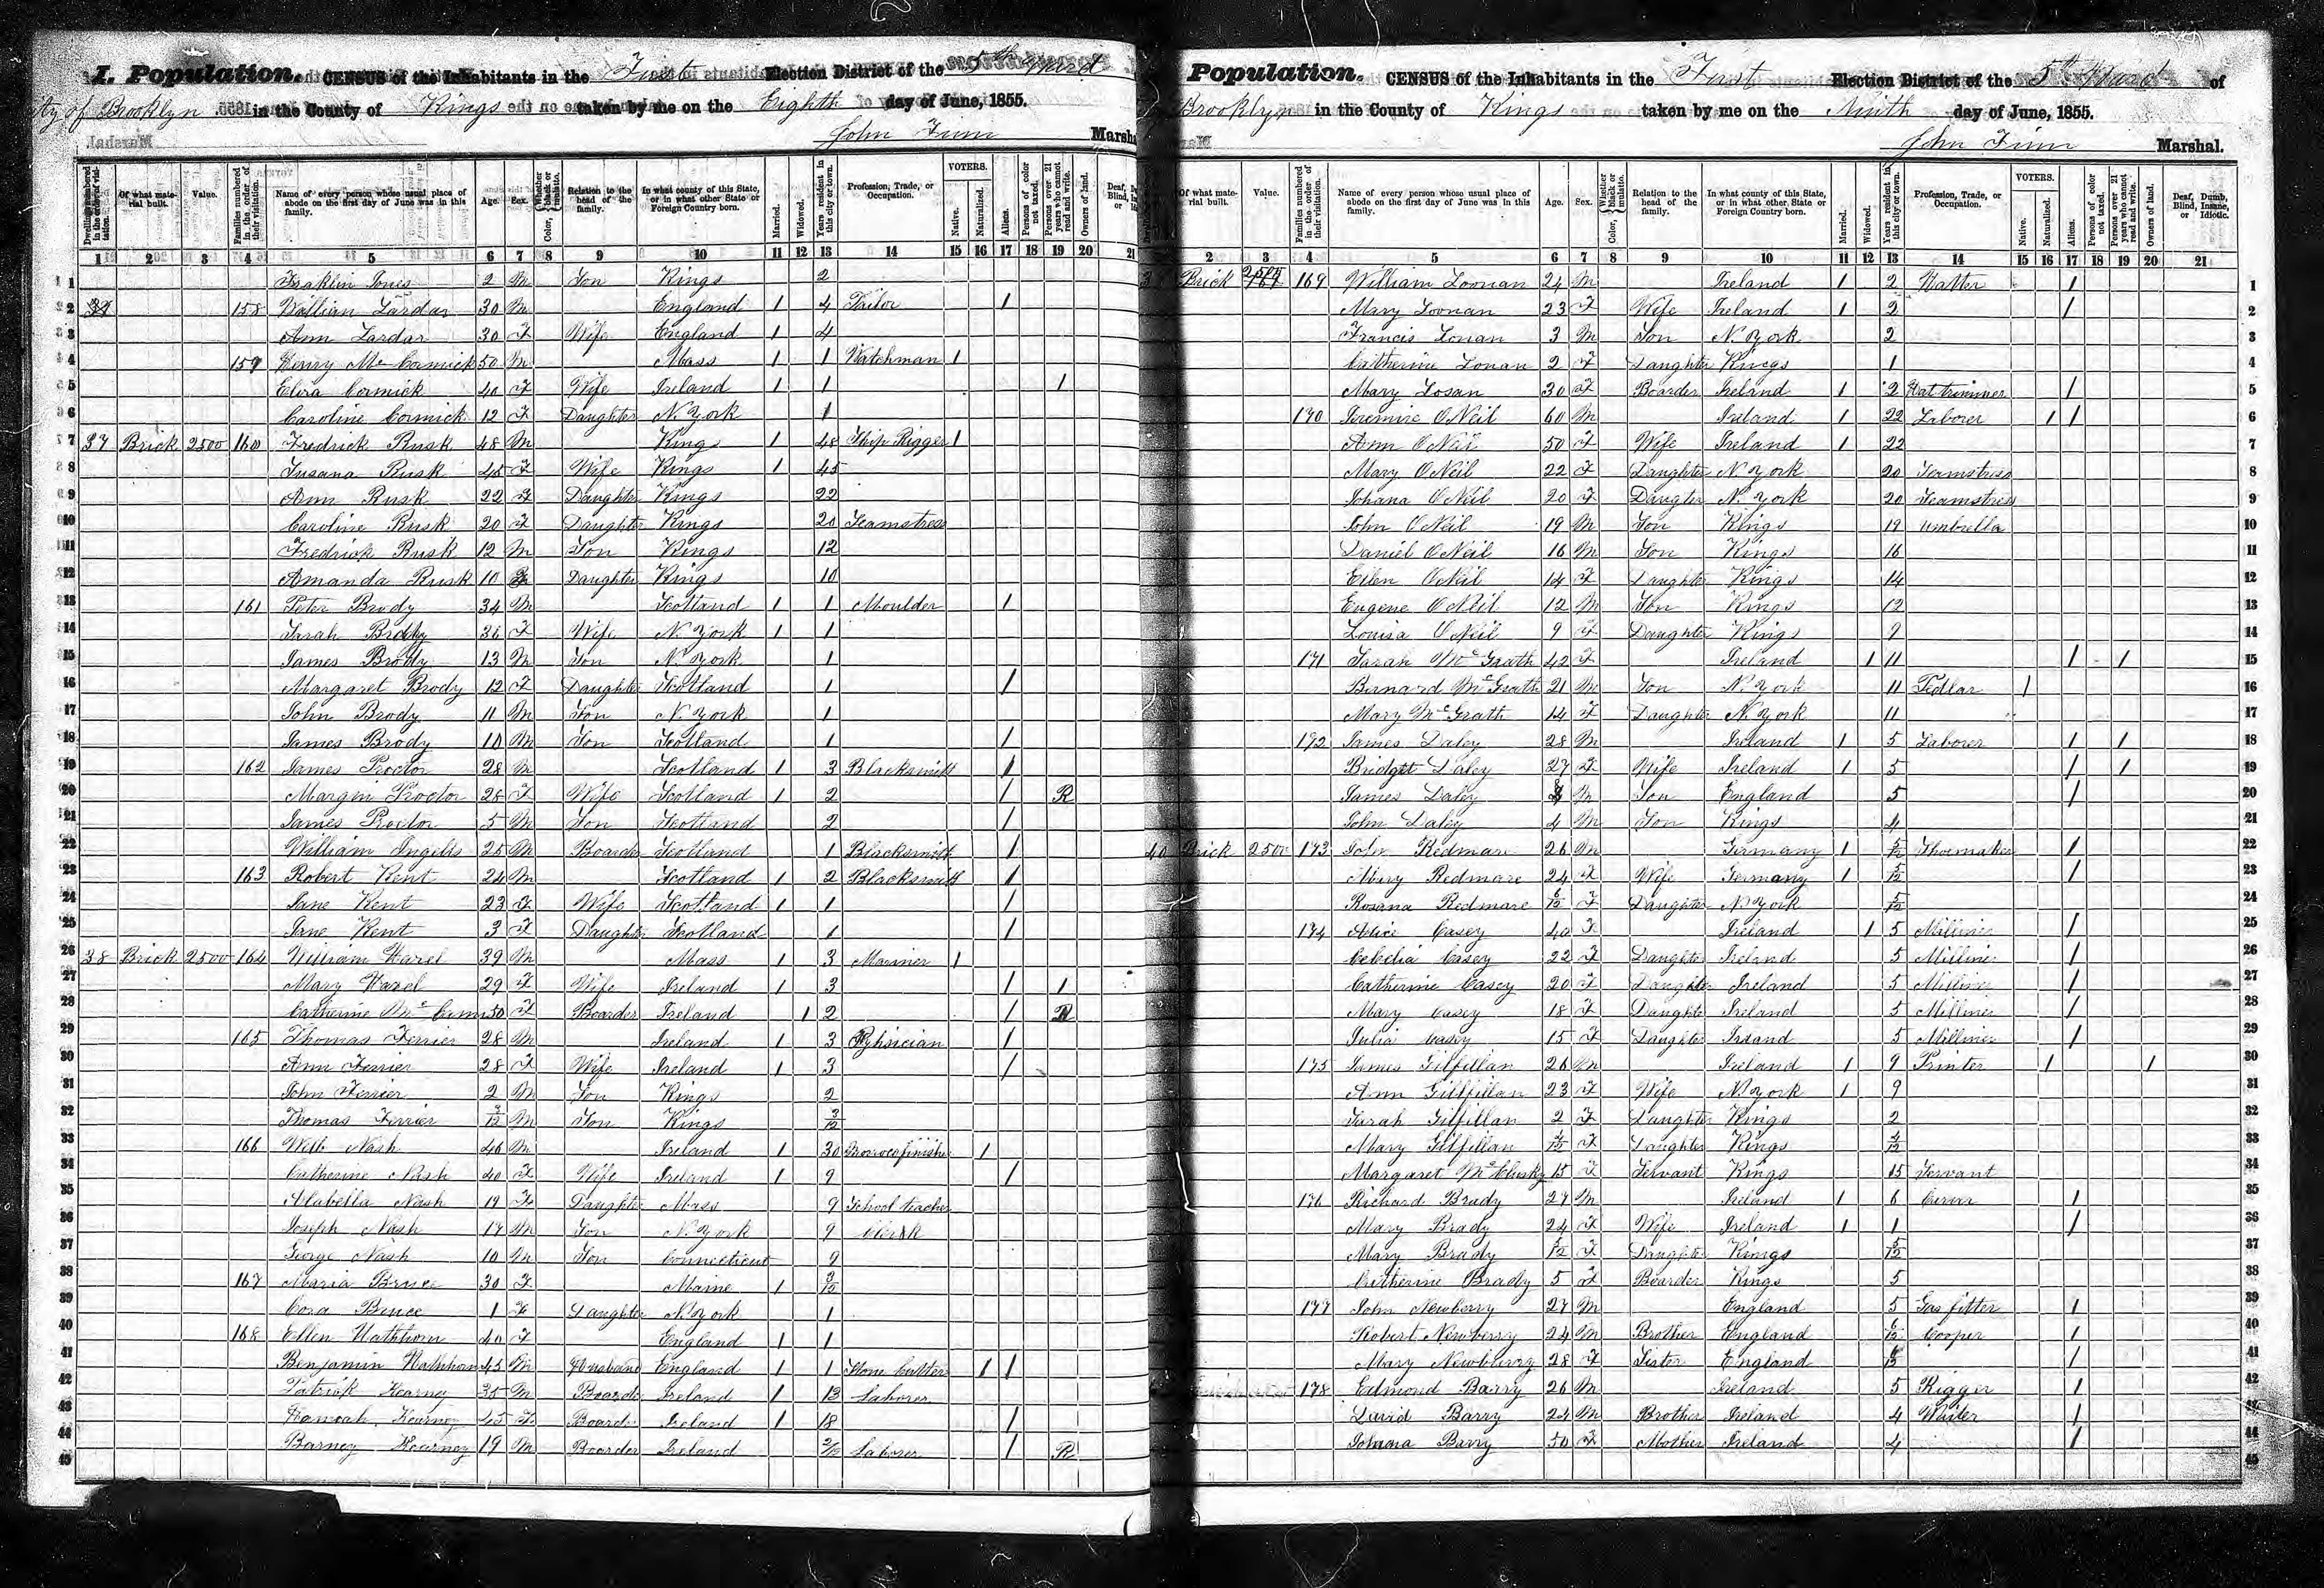 I. Population. CENSUS of the Inhabitants in the First Election District of the 5th Ward
City of Brooklyn in the County of Kings taken by me on the Eighth day of June, 1855.
John Finn Marshal
Dwellings numbered in the order of visitation. Of what material built. Value. Families numbered in the order of their visitation. Name of every person whose usual place of abode on the first day of June was in this family. Age. Sex. Color, Whether black or mulatto. Relation to the head of the family. In what county of this State, or in what other State or Foreign Country born. Married. Widowed. Years resident in this city or town. Profession, Trade, or Occupation. VOTERS. Native. Naturalized. Aliens. Persons of color not taxed. Persons over 21 years who cannot read and write. Owners of land. Deaf, Blind, or
1 2 3 4 5 6 7 8 9 10 11 12 13 14 15 16 17 18 19 20 21
1 Fraklin Jones 2 M Son Kings 2
2 158 William Lardar 30 M England 1 4 Tailor 1
3 Ann Lardar 30 F Wife England 1 4
4 159 Henry McCormick 50 M Mass 1 1 Watchman 1
5 Eliza Cormick 40 F Wife Ireland 1 1 1
6 Caroline Cormick 12 F Daughter N. York 1
7 37 Brick 2500 160 Fredrick Rusk 48 M Kings 1 48 Ship Rigger 1
8 Susana Rusk 45 F Wife Kings 1 45
9 Ann Rusk 22 F Daughter Kings 22
10 Caroline Rusk 20 F Daughter Kings 20 Seamstress
11 Fredrick Rusk 12 M Son Kings 12
12 Amanda Rusk 10 F Daughter Kings 10
13 161 Peter Brody 34 M Scotland 1 1 Moulder 1
14 Sarah Brody 36 F Wife N. York 1 1
15 James Brody 13 M Son N. York 1
16 Margaret Brody 12 F Daughter Scotland 1 1
17 John Brody 11 M Son N. York 1
18 James Brody 10 M Son Scotland 1 1
19 162 James Proctor 28 M Scotland 1 3 Blacksmith 1
20 Margin Proctor 28 F Wife Scotland 1 2 1 R
21 James Proctor 5 M Son Scotland 2 1
22 William Ingelis 25 M Boarder Scotland 1 Blacksmith 1
23 163 Robert Kent 24 M Scotland 1 2 Blacksmith 1
24 Jane Kent 23 F Wife Scotland 1 1 1
25 Jane Kent 3 F Daughter Scotland 1 1
26 38 Brick 2500 164 William Hazel 39 M Mass 1 3 Mariner 1
27 Mary Hazel 29 F Wife Ireland 1 3 1 1
28 Catherine 50 F Boarder Ireland 1 2 1
29 165 Thomas Ferrier 28 M Ireland 1 3 Pyhsician 1
30 Ann Ferrier 28 F Wife Ireland 1 3 1
31 John Ferrier 2 M Son Kings 2
32 Thomas Ferrier 3/12 M Son Kings 3/12
33 166 Nash 46 M Ireland 1 30 Moroccofinisher 1
34 Catherine Nash 40 F Wife Ireland 1 9 1
35 Alabella Nash 19 F Daughter Mass 9 School teacher
36 Joseph Nash 17 M Son N. York 9 Clerk
37 George Nash 10 M Son Connecticut 9
38 167 Maria Bruce 30 F Maine 1 3/12
39 Cora Bruce 1 F Daughter N. York 1
40 168 Ellen Hathhorn 40 F England 1 1
41 Benjamin Hathhorn 45 M Husband England 1 1 Stone Cutter 1 1
42 Patrick Kearney 35 M Boarder Ireland 1 13 Laborer
43 Hannah Kearney 45 F Boarder Ireland 1 18 1
44 Barney Kearney 19 M Boarder Ireland 2/12 Laborer 1 R
45
Population. CENSUS of the Inhabitants in the First Election District of the 5th Ward of
Brooklyn in the County of Kings taken by me on the Ninth day of June, 1855.
John Finn Marshal.
Of what material built. Value. Families numbered in the order of their visitation. Name of every person whose usual place of abode on the first day of June was in this family. Age. Sex. Color, Whether black or mulatto. Relation to the head of the family. In what county of this State, or in what other State or Foreign Country born. Married. Widowed. Years resident in this city or town. Profession, Trade, or Occupation. VOTERS. Native. Naturalized. Aliens. Persons of color not taxed. Persons over 21 years who cannot read and write. Owners of land. Deaf, Dumb, Blind, Insane, or Idiotic.
2 3 4 5 6 7 8 9 10 11 12 13 14 15 16 17 18 19 20 21
Brick 169 William Loonan 24 M Ireland 1 2 Hatter 1 1
Mary Loonan 23 F Wife Ireland 1 2 1 2
Francis Lonan 3 M Son N. York 2 3
Catherine Lonan 2 F Daughter Kings 1 4
Mary Losan 30 F Boarder Ireland 1 2 Hat trimmer 1 5
170 Jremire ONeil 60 M Ireland 1 22 Laborer 1 1 6
Ann ONeil 50 F Wife Ireland 1 22 7
Mary ONeil 22 F Daughter N. York 20 Seamstress 8
Johana ONeil 20 F Daugter N. York 20 Seamstress 9
John ONeil 19 M Son Kings 19 umbrella 10
Daniel ONeil 16 M Son Kings 16 11
Ellen ONeil 14 F Daughter Kings 14 12
Eugene ONeil 12 M Son Kings 12 13
Louisa ONeil 9 F Daughter Kings 9 14
171 Sarah McGrath 42 F Ireland 1 11 1 1 15
Bernard McGrath 21 M Son N. York 11 Pedlar 1 16
Mary McGrath 14 F Daughter N. York 11 17
172 James Daley 28 M Ireland 1 5 Laborer 1 1 18
Bridget Daley 27 F Wife Ireland 1 5 1 1 19
James Daley M Son England 5 1 20
John Daley 4 M Son Kings 4 21
40 Brick 2500 173 John Redmare 26 M Germany 1 5/12 Shoemaker 1 22
Mary Redmare 24 F Wife Germany 1 5/12 1 23
Rosana Redmare 6/12 F Daughter N. York 5/12 24
174 Alice Casey 40 F Ireland 1 5 Milliner 1 25
Cebelia Casey 22 F Daughter Ireland 5 Milliner 1 26
Catherine Casey 20 F Daughter Ireland 5 Milliner 1 27
Mary Casey 18 F Daughter Ireland 5 Milliner 1 28
Julia Casey 15 F Daughter Ireland 5 Milliner 1 29
175 James Gilfillan 26 M Ireland 1 9 Printer 1 1 30
Ann Gillfillan 23 F Wife N. York 1 9 31
Sarah Gilfillan 2 F Daughter Kings 2 32
Mary Gilfillan 4/12 F Daughter Kings 4/12 33
Margaret McClusky 15 F Servant Kings 15 Servant 34
176 Richard Brady 27 M Ireland 1 6 Carver 1 35
Mary Brady 24 F Wife Ireland 1 1 1 36
Mary Brady 5/12 F Daughter Kings 5/12 37
Catherine Brady 5 F Boarder Kings 5 38
177 John Newberry 27 M England 5 Gas fitter 1 39
Robert Newberry 24 M Brother England 6/12 Cooper 1 40
Mary Newberry 28 F Sister England 1 41
178 Edmond Barry 26 M Ireland 5 Rigger 1 42
David Barry 24 M Brother Ireland 4 Waiter 1 43
Johana Barry 50 F Mother Ireland 4 1 44
45